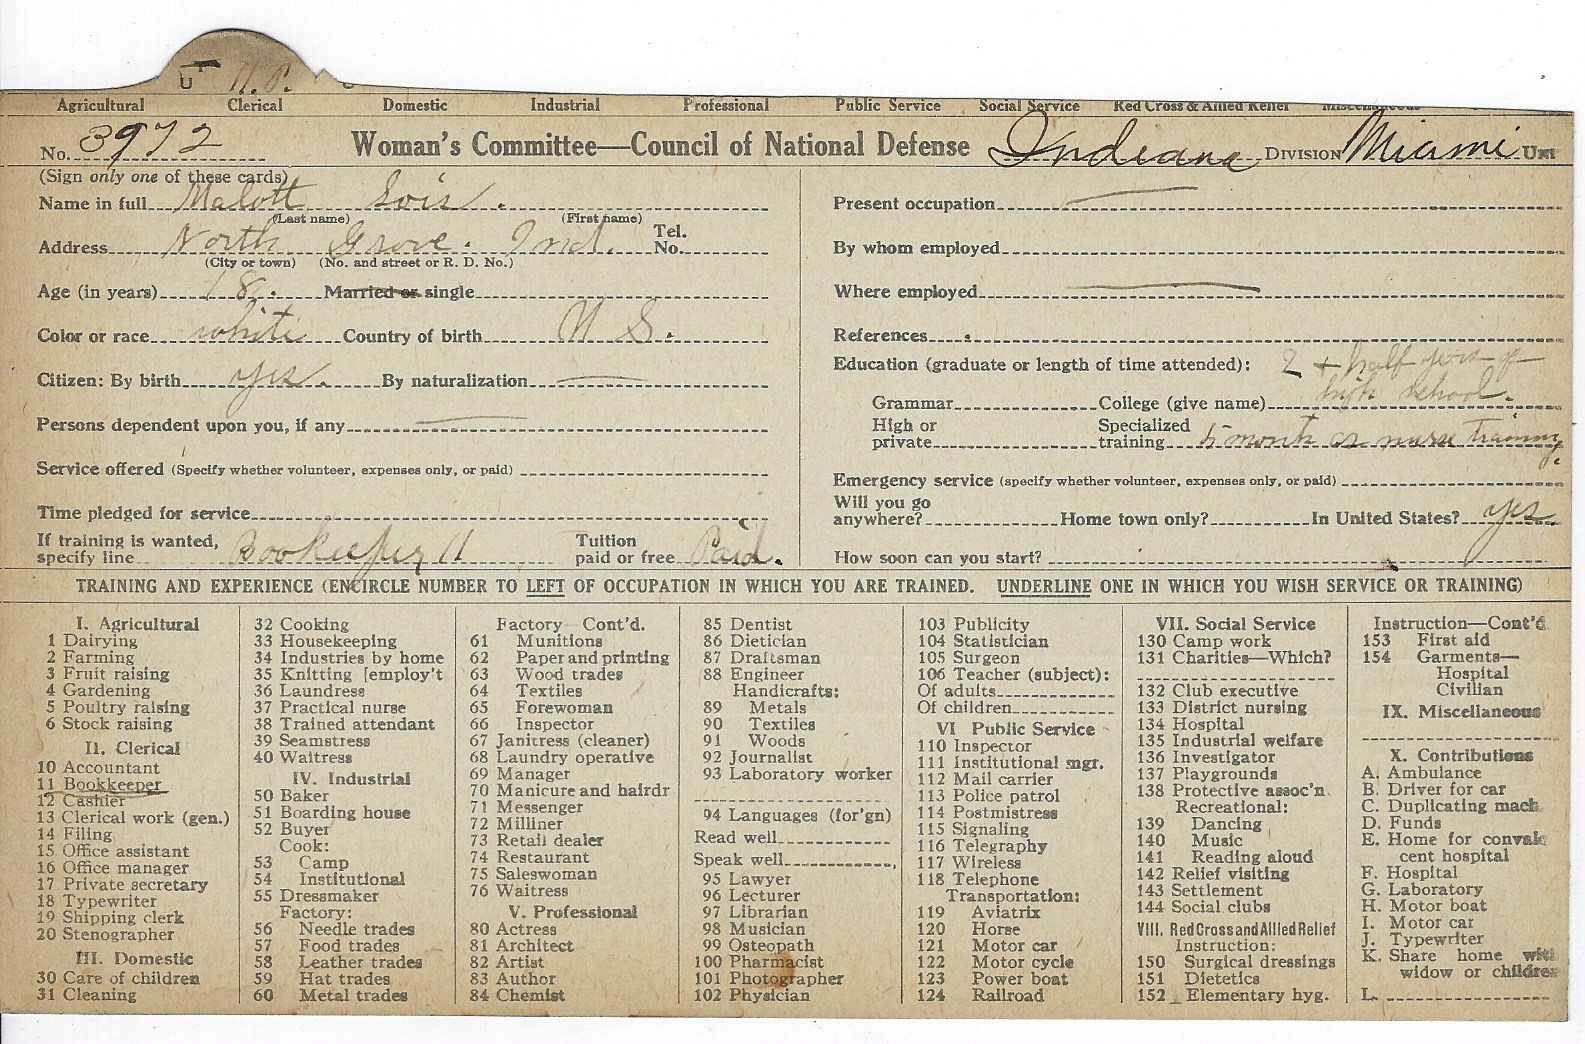 U T
Agricultural Clerical Domestic Industrial Professional Public Service Social Service Red Cross & Allied Relief Miscellaneous
No. 3972 Woman's Committee—Council of National Defense Indiana DIVISION Miami Unit
(Sign only one of these cards)
Name in full Malott Lois.
(Last name) (First name)
Address North Grove. Ind. Tel. No.
(City or town) (No. and street or R. D. No.)
Age (in years) 18. Married or single
Color or race white Country of birth U S.
Citizen: By birth yes. By naturalization —
Persons dependent upon you, if any —
Service offered (Specify whether volunteer, expenses only, or paid)
Time pledged for service
If training is wanted, specify line Bookeeper 11 Tuition paid or free Paid.
Present occupation —
By whom employed
Where employed —
References
Education (graduate or length of time attended): 2 + half years of
high school.
Grammar College (give name)
High or private Specialized training 5 month as nurse training.
Emergency service (specify whether volunteer, expenses only, or paid)
Will you go anywhere? Home town only? In United States? yes.
How soon can you start?
TRAINING AND EXPERIENCE (ENCIRCLE NUMBER TO LEFT OF OCCUPATION IN WHICH YOU ARE TRAINED. UNDERLINE ONE IN WHICH YOU WISH SERVICE OR TRAINING)
I. Agricultural
1 Dairying
2 Farming
3 Fruit raising
4 Gardening
5 Poultry raising
6 Stock raising
II. Clerical
10 Accountant
11 Bookkeeper
12 Cashier
13 Clerical work (gen.)
14 Filing
15 Office assistant
16 Office manager
17 Private secretary
18 Typewriter
19 Shipping clerk
20 Stenographer
III. Domestic
30 Care of children
31 Cleaning
32 Cooking
33 Housekeeping
34 Industries by home
35 Knitting [employ't
36 Laundress
37 Practical nurse
38 Trained attendant
39 Seamstress
40 Waitress
IV. Industrial
50 Baker
51 Boarding house
52 Buyer
Cook:
53 Camp
54 Institutional
55 Dressmaker
Factory:
56 Needle trades
57 Food trades
58 Leather trades
59 Hat trades
60 Metal trades
Factory—Cont'd.
61 Munitions
62 Paper and printing
63 Wood trades
64 Textiles
65 Forewoman
66 Inspector
67 Janitress (cleaner)
68 Laundry operative
69 Manager
70 Manicure and hairdr
71 Messenger
72 Milliner
73 Retail dealer
74 Restaurant
75 Saleswoman
76 Waitress
V. Professional
80 Actress
81 Architect
82 Artist
83 Author
84 Chemist
85 Dentist
86 Dietician
87 Draftsman
88 Engineer
Handicrafts:
89 Metals
90 Textiles
91 Woods
92 Journalist
93 Laboratory worker
94 Languages (for'gn)
Read well
Speak well
95 Lawyer
96 Lecturer
97 Librarian
98 Musician
99 Osteopath
100 Pharmacist
101 Photographer
102 Physician
103 Publicity
104 Statistician
105 Surgeon
106 Teacher (subject):
Of adults
Of children
VI Public Service
110 Inspector
111 Institutional mgr.
112 Mail carrier
113 Police patrol
114 Postmistress
115 Signaling
116 Telegraphy
117 Wireless
118 Telephone
Transportation:
119 Aviatrix
120 Horse
121 Motor car
122 Motor cycle
123 Power boat
124 Railroad
VII. Social Service
130 Camp work
131 Charities—Which?
132 Club executive
133 District nursing
134 Hospital
135 Industrial welfare
136 Investigator
137 Playgrounds
138 Protective assoc'n
Recreational:
139 Dancing
140 Music
141 Reading aloud
142 Relief visiting
143 Settlement
144 Social clubs
VIII. Red Cross and Allied Relief
Instruction:
150 Surgical dressings
151 Dietetics
152 Elementary hyg.
Instruction—Cont'd
153 First aid
154 Garments—
Hospital
Civilian
IX. Miscellaneous
X. Contributions
A. Ambulance
B. Driver for car
C. Duplicating mach
D. Funds
E. Home for convales
cent hospital
F. Hospital
G. Laboratory
H. Motor boat
I. Motor car
J. Typewriter
K. Share home with
widow or children
L.